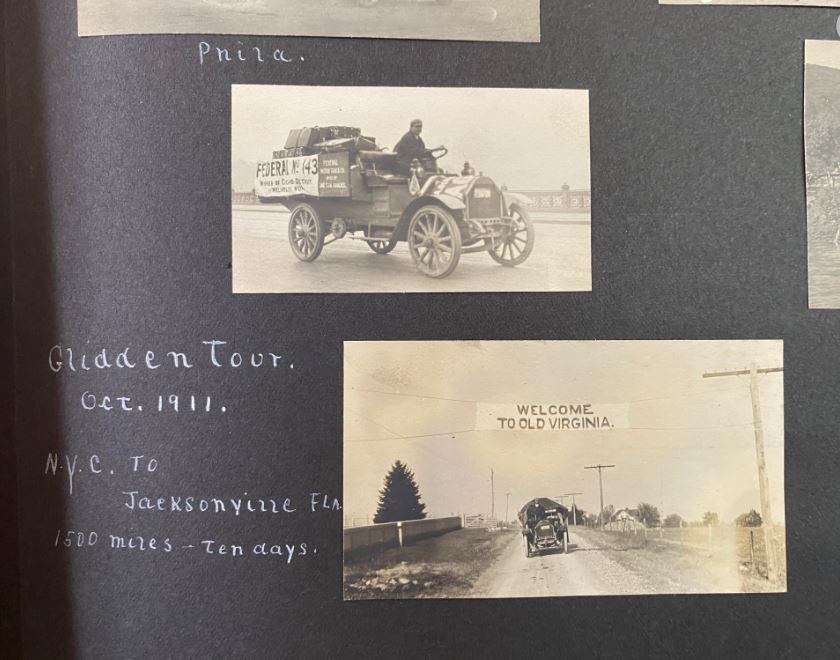 Phila.
FEDERAL No 143
FEDERAL
Glidden Tour.
Oct. 1911.
N.Y.C. TO
Jacksonville FLA
1500 miles - Ten days.
WELCOME
TO OLD VIRGINIA.